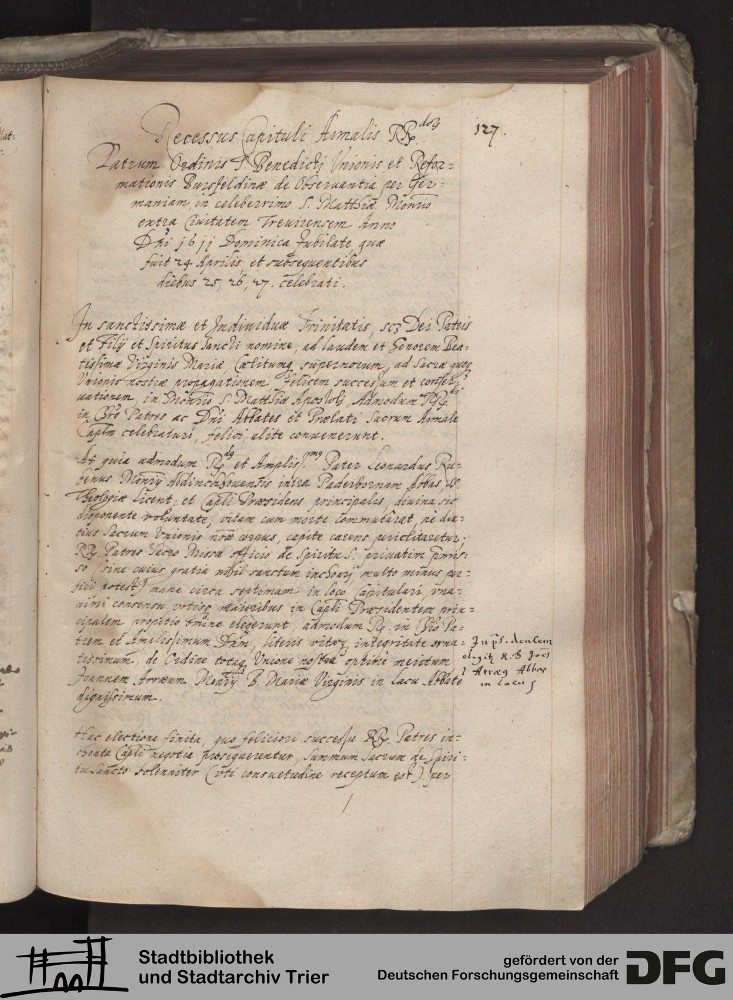 127.
Recessus Capituli Annalis RR.dorū
Patrum Ordinis S. Benedictj Unionis et Refor=
mationis Bursfeldinæ de Observantia per Ger=
maniam, in celeberrimo S. Matthiæ Monrio
extra Ciuitatem Treuirensem Anno
Dñi j6jj Dominica Jubilate quæ
fuit 24 Aprilis et subsequentibus
diebus 25, 26, 27. celebrati.
In sanctissimæ et Indiuiduæ Trinitatis, scz Dei Patris
et Filij et Spiritus Sancti nomine, ad laudem et honorem Bea=
tissimæ Virginis Mariæ, Cælitumq supernorum, ad sacræ quoq
Unionis nostræ propagationem felicem successum et conser=
uationem, in Monrio S. Matthiæ Apostoli, Admodum RR.di
in Chro Patres ac Dñi Abbates et Prælati Sacrum Annale
Caplm celebraturi, felici alite conuenerunt.
At quia admodum R.dus et Amplis.mus Pater Leonardus Ru=
benus Monrij Abdinckhouensis intra Paderbornam Abbas SS.
Theologiæ Licent. et Capli Præsidens principalis, diuina sic
disponente voluntate, vitam cum morte commutarat, ne diu=
tius Sacrum Unionis nræ corpus, capite carens periclitaretur,
RR. Patres Sacro Missæ officio de Spiritu S. priuatim præmis=
so (sine cuius gratia nihil sanctum inchoarj multo minus per=
fici potest) mane circa septimam in loco Capitulari, vna=
nimi consensu, votisq maioribus in Capli Præsidentem prin=
cipalem propitio numine elegerunt admodum R. in Chro Pa=
trem et Amplissimum Dñm, literis vitæq integritate orna=
tissimum, de Ordine totaq Unione nostra optime meritum
Joannem Arræum Monrij B. Mariæ Virginis in lacu Abbatē
dignissimum.
In p̄s.dentem
elegit. R. D Joēs
Arræq Abbas
in lacu
Hac electione finita, quo feliciori successu RR. Patres in=
choata Capli negotia prosequerentur, Summum Sacrum de Spiri=
tu Sancto solenniter (vti consuetudine receptum est) per
Stadtbibliothek
und Stadtarchiv Trier
gefördert von der
Deutschen Forschungsgemeinschaft
DFG